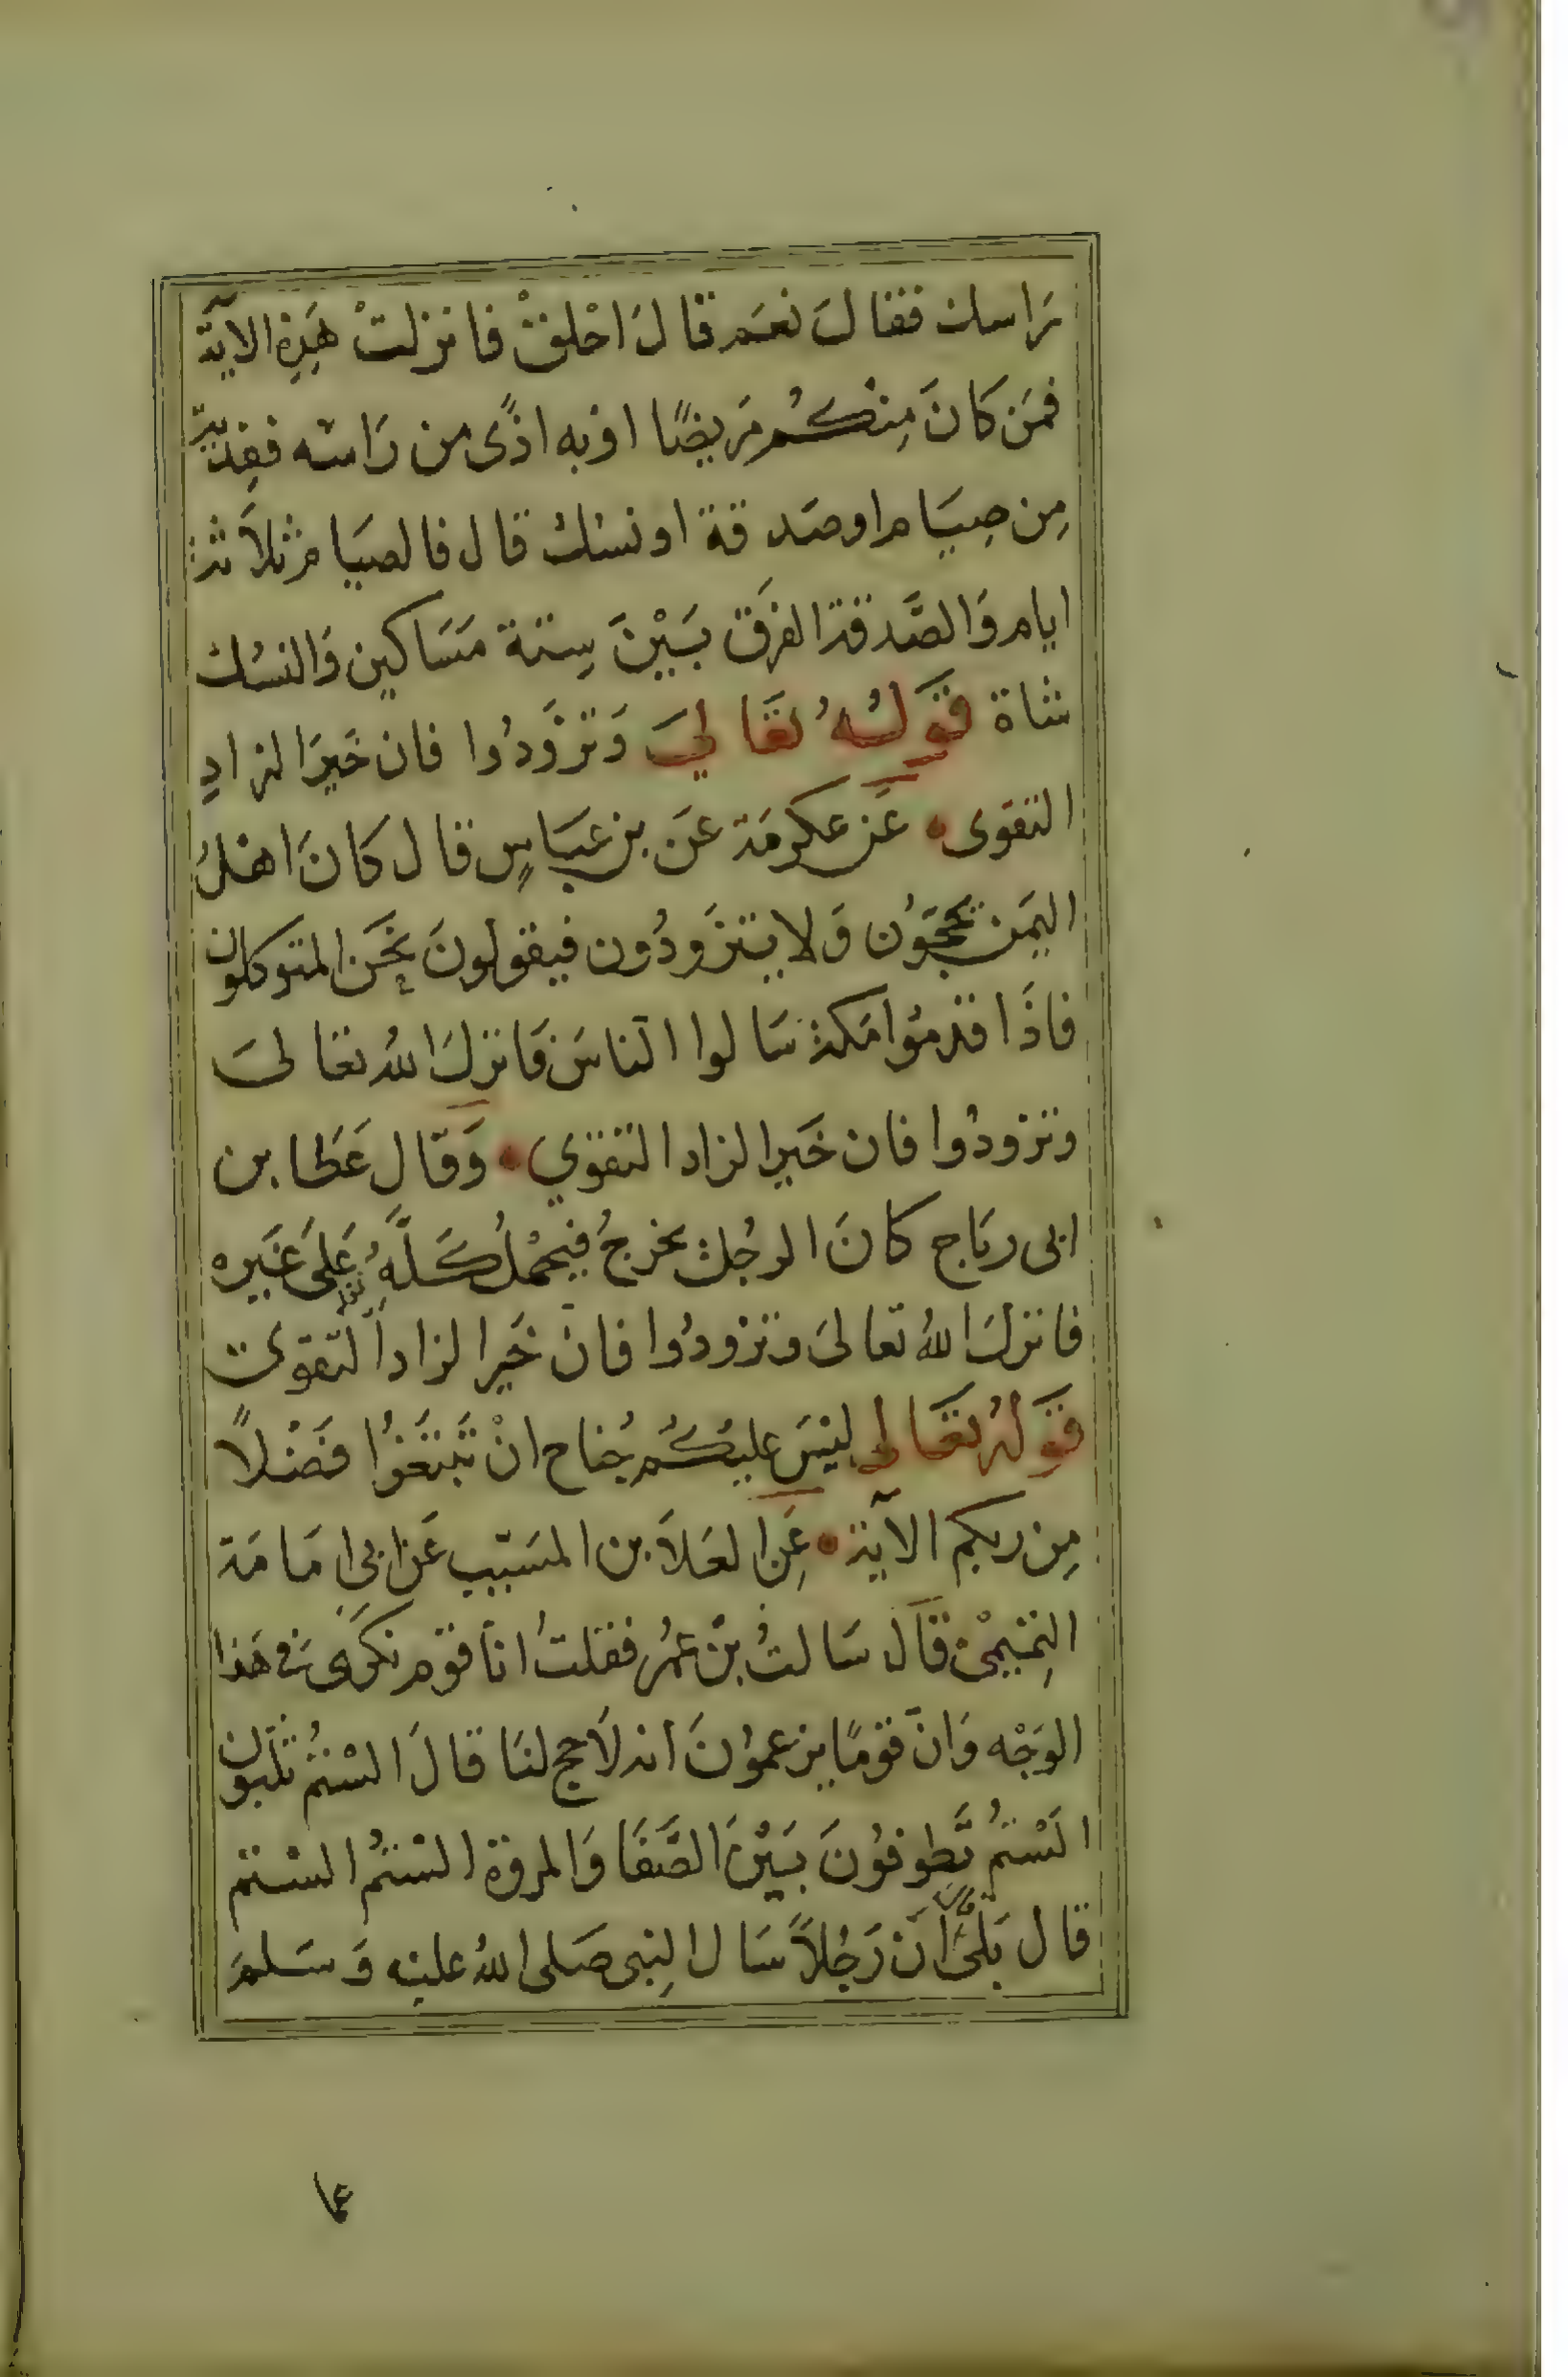 راسك فقال نعم قال احلق فانزلت هذه الآية
فمن كان منكم مريضًا او به اذًى من راسه ففدية
من صيام او صدقة او نسك قال فالصيام ثلاثة
ايام والصَّدقة الفرق بين ستة مساكين والنسك
شاة قوله تعالى وتزودوا فان خير الزاد
التقوى عن عكرمة عن بن عباس قال كان اهل
اليمن يحجون ولا يتزودون فيقولون نحن المتوكلون
فاذا قدموا مكة سالوا الناس فانزل الله تعالى
وتزودوا فان خير الزاد التقوي وقال عطا بن
ابى رباح كان الرجل يخرج فيحمل كله على غيره
فانزل الله تعالى وتزودوا فان خير الزاد التقوى
قوله تعالى ليس عليكم جناح ان تبتغوا فضلاً
من ربكم الآية عن العلا بن المسيب عن ابي امامة
التيمي قال سالت بن عمر فقلت انا قوم نكرى فى هذا
الوجه وان قومًا يزعمون انه لا حج لنا قال الستم تلبون
الستم تطوفون بين الصَّفا والمروة الستم الستم
قال بلى قال ان رجلاً سال النبى صلى الله عليه وسلم
عما